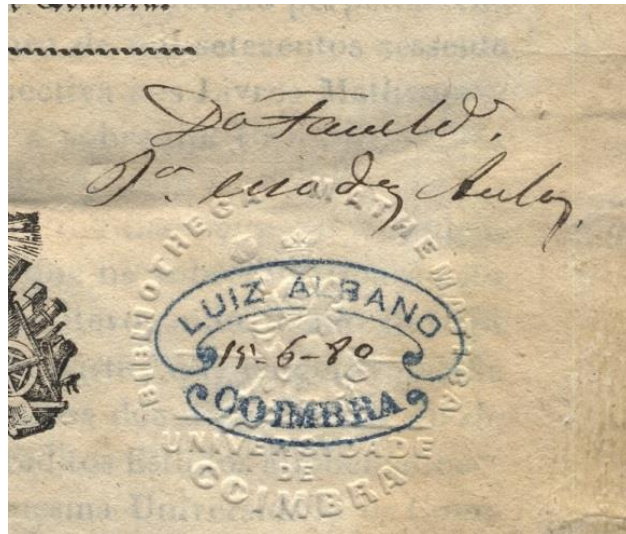 de Coimbra.
Da Faculd.
Pª uso das Aulas
BIBLIOTHECA MATHEMATICA
LUIZ ALBANO
15-6-80
COIMBRA
UNIVERSIDADE
DE
COIMBRA